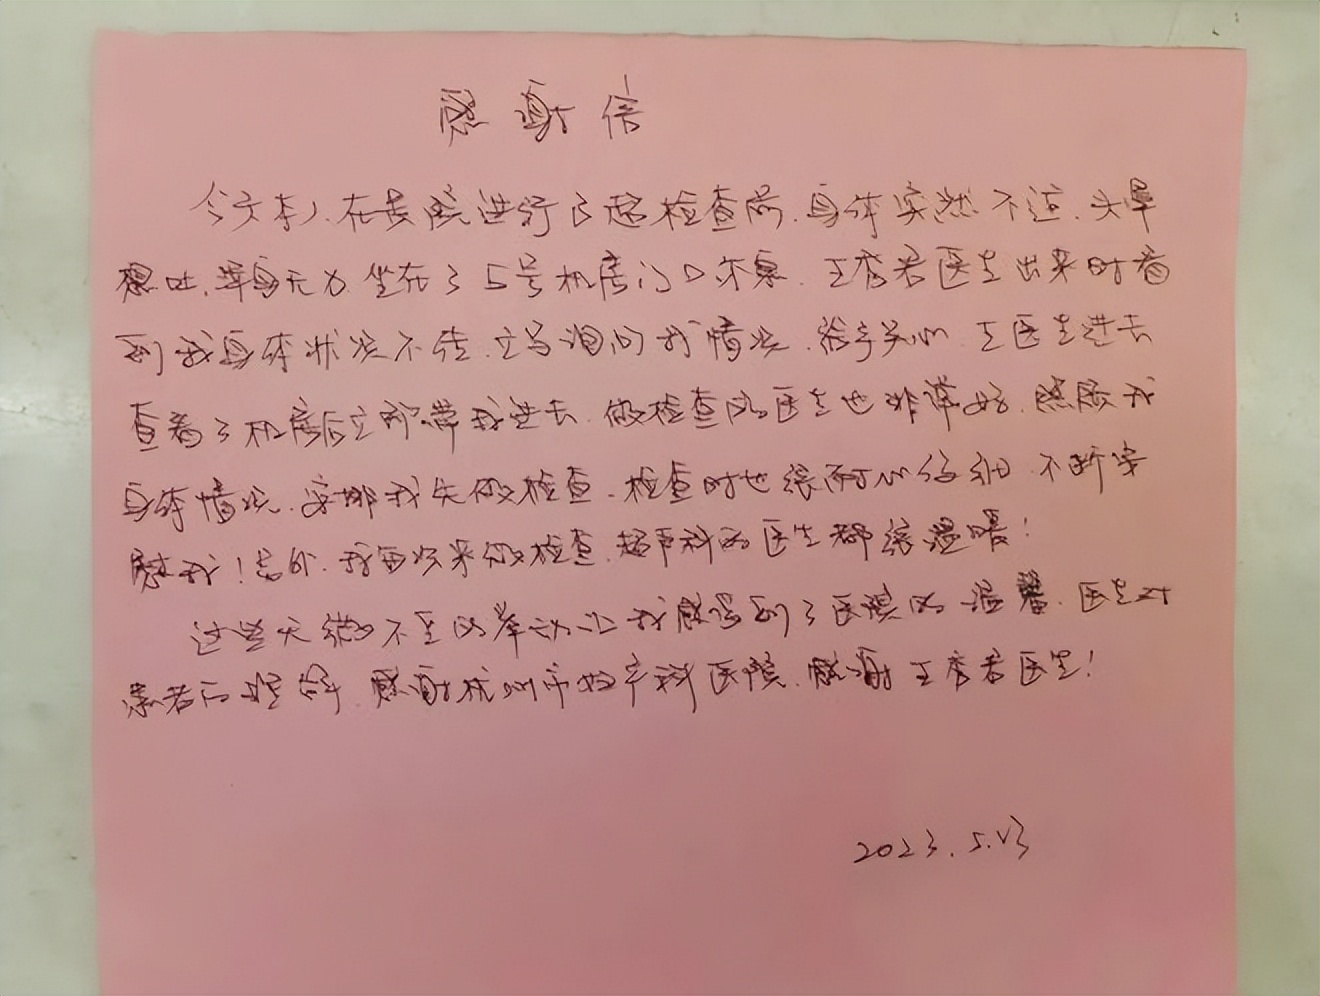 感谢信
今天本人在贵院进行B超检查前,身体突然不适,头晕
想吐,浑身无力坐在了5号机房门口休息,王秀君医生出来时看
到我身体状况不佳,立马询问我情况,给予关心,王医生进去
查看了机房后立即带我进去,做检查的医生也非常好,照顾我
身体情况,安排我先做检查,检查时也很耐心仔细,不断安
慰我!另外,我每次来做检查,超声科的医生都很温暖!
这些无微不至的举动让我感受到了医院的温馨,医生对
患者的,感谢杭州市妇产科医院,感谢王秀君医生!
2023.5.13